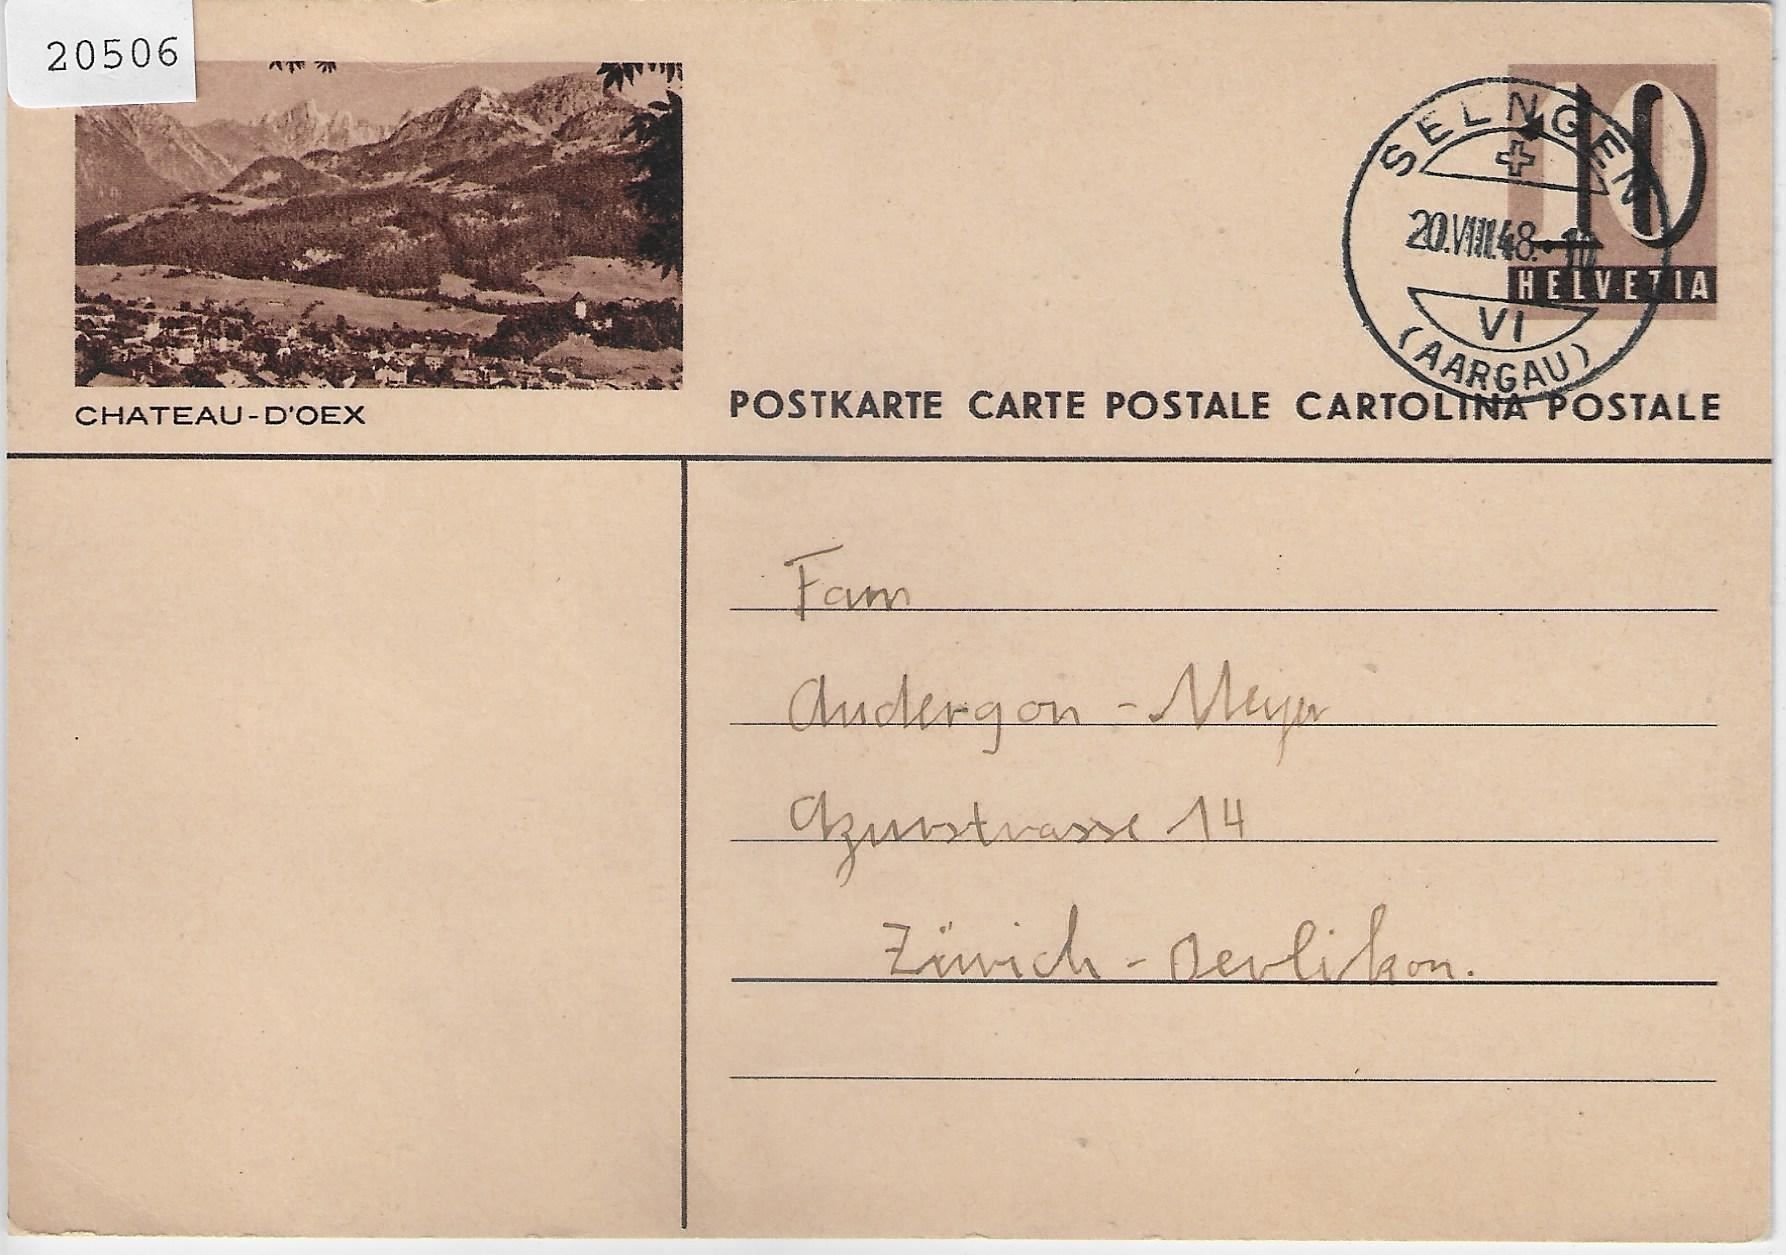 20506
10
HELVETIA
SELNGEN
20.VIII.48.-10
VI
(AARGAU)
CHATEAU-D'OEX
POSTKARTE CARTE POSTALE CARTOLINA POSTALE
Fam
Audergon - Meyer
Azurstrasse 14
Zürich - Oerlikon.